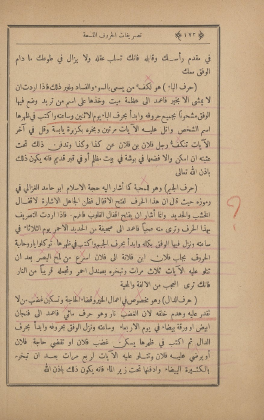 ﴿ ١٢٢ ﴾ تصريفات الحروف التسعة
في مقدم رأسك وقابله فانك تسلب عقله ولا يزال في طوعك ما دام
الوفق معك
(حرف الباء) هو لكف من يسمى بالسوء والفساد وغير ذلك فاذا اردت ان
لا يمشي الا بخير فاعمد الى عظمة ميت وخذها على اسم من تريد وضع فيها
الوفق وابدأ بحرف الباء يوم الاثنين وساعته واكتب في ظهرها
اسم الشخص واتل عليه الآيات مرتين وبخره بكزبرة يابسة وقل في آخر
الآيات تكفوا رجل فلان بن فلان عن كذا وكذا وتدفن ذلك تحت
عتبته ان امكن والا فضعها في بيت مظلم أو في قبر قديم فانه يكون ذلك
باذن الله تعالى
(حرف الجيم) وهو للمحبة كما أشار اليه حجة الاسلام ابو حامد الغزالي في
رموزه حيث قال ان هذا الحرف لفتح الاقفال فظن الجاهل الاشارة لاقفال
الخشب والحديد وانما أشار ان يفتح اقفال القلوب فافهم. فاذا اردت التصريف
بهذا الحرف وترى منه عجباً فاعمد الى صحيفة من الحديد الاحمر يوم الثلاثاء في
ساعته ونزل فيها الوفق بكماله وابدأ بحرف الجيم واكتب في ظهرها
الحروف بجلب فلان بن فلانة الى فلان اسرع من لمح البصر بعد ان
تتلو عليه الآيات ثلاث مرات وتبخره بصندل احمر وتجعله قريباً من النار
حتى ترى العجب من الالفة والمحبة
(حرف الدال) وهو مخصوص في اعمال الخير وقضاء الحاجة وتسكين غضب من لا
تقدر عليه وعدم خلقه لان الغضب نار وهو حرف مائي فاعمد الى فنجان
ابيض او ورقة بيضاء في يوم الاربعاء وساعته ونزل الوفق بحروفه وابدأ بحرف
الدال ثم اكتب في ظهرها يسكن غضب فلان او تقضى حاجة فلان
أو يرضى عليه فلان وتتلو عليه الآيات اربع مرات بعد ان تبخره
البيضاء وادفنها تحت زير الماء فانه يكون ذلك باذن الله